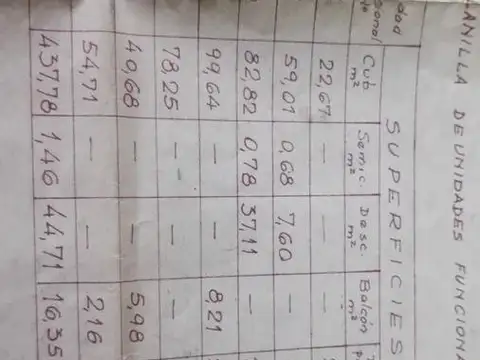 ANILLA DE UNIDADES FUNCION
dad SUPERFICIES
onal Cub. Semic. Desc. Balcón
m² m² m² m²
22,67 —
59,01 0,68 7,60 —
82,82 0,78 37,11 —
99,64 — — 8,21
78,25 — — —
40,68 — — 5,98
54,71 — — 2,16
437,78 1,46 44,71 16,35